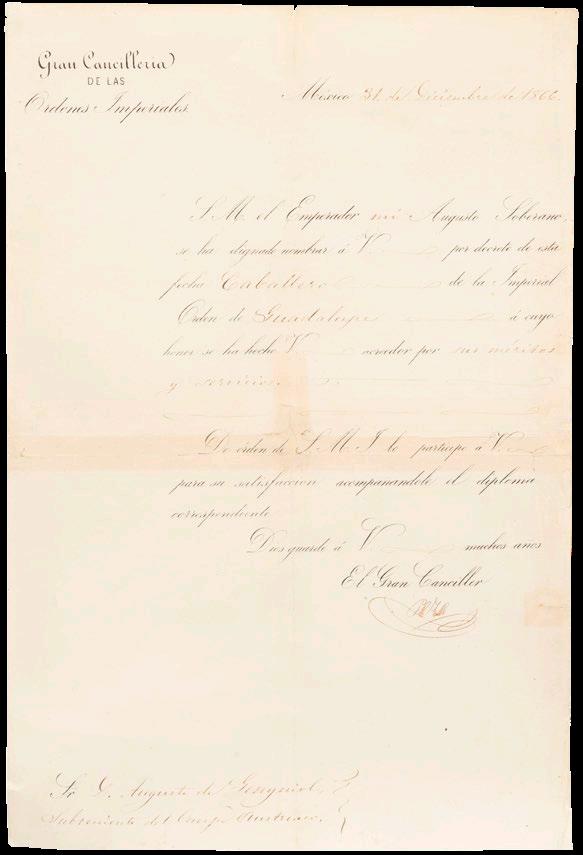 Gran Cancilleria
DE LAS
Ordenes Imperiales.
México 31 de Diciembre de 1866.
S. M. el Emperador mi Augusto Soberano,
se ha dignado nombrar á V. por decreto de esta
fecha Caballero de la Imperial
Orden de Guadalupe á cuyo
honor se ha hecho V. acreedor por sus méritos
y servicios.
De orden de S. M. I. lo participo á V.
para su satisfaccion acompañandole el diploma
correspondiente.
Dios guarde á V. muchos años
El Gran Canciller
Sr. D. Augusto de
Subteniente del Cuerpo Austriaco.